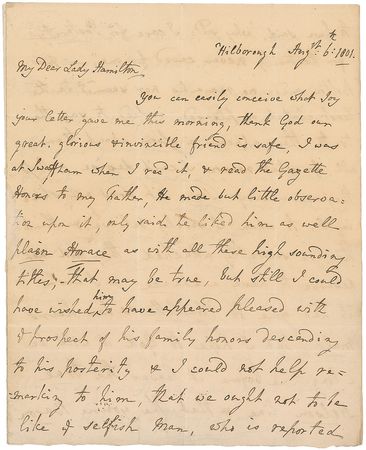 Hilborough Augst. 6th: 1801.
My Dear Lady Hamilton
you can easily conceive what Joy
your letter gave me this morning, thank God our
great. glorious & invincible friend is safe, I was
at Swaffham when I recd it, & read the Gazette
Honors to my Father, He made but little observa-
tion upon it, only said he liked him as well
plain Horace as with all these high sounding
titles, that may be true, but still I could
have wished him to have appeared pleased with
ye prospect of his family honors descending
to his posterity & I could not help re-
-marking to him, that we ought not to be
like ye selfish Man, who is reported